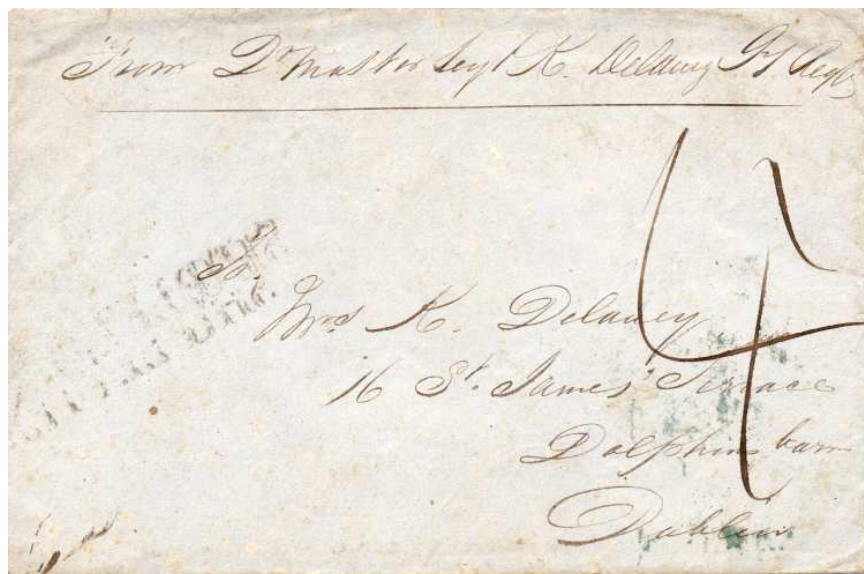 From Dr Master Sergt K. Delaney Regt
4
To.
Mrs K. Delaney
16 St. James' Terrace
Dolphins barn
Dublin